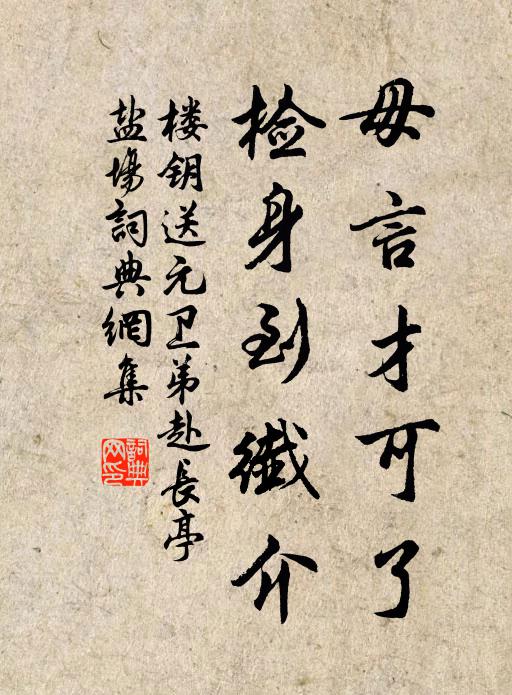 毋言才可了
检身到纎介
楼钥送元卫弟赴长亭
盐場詞典網集
詞典
网印